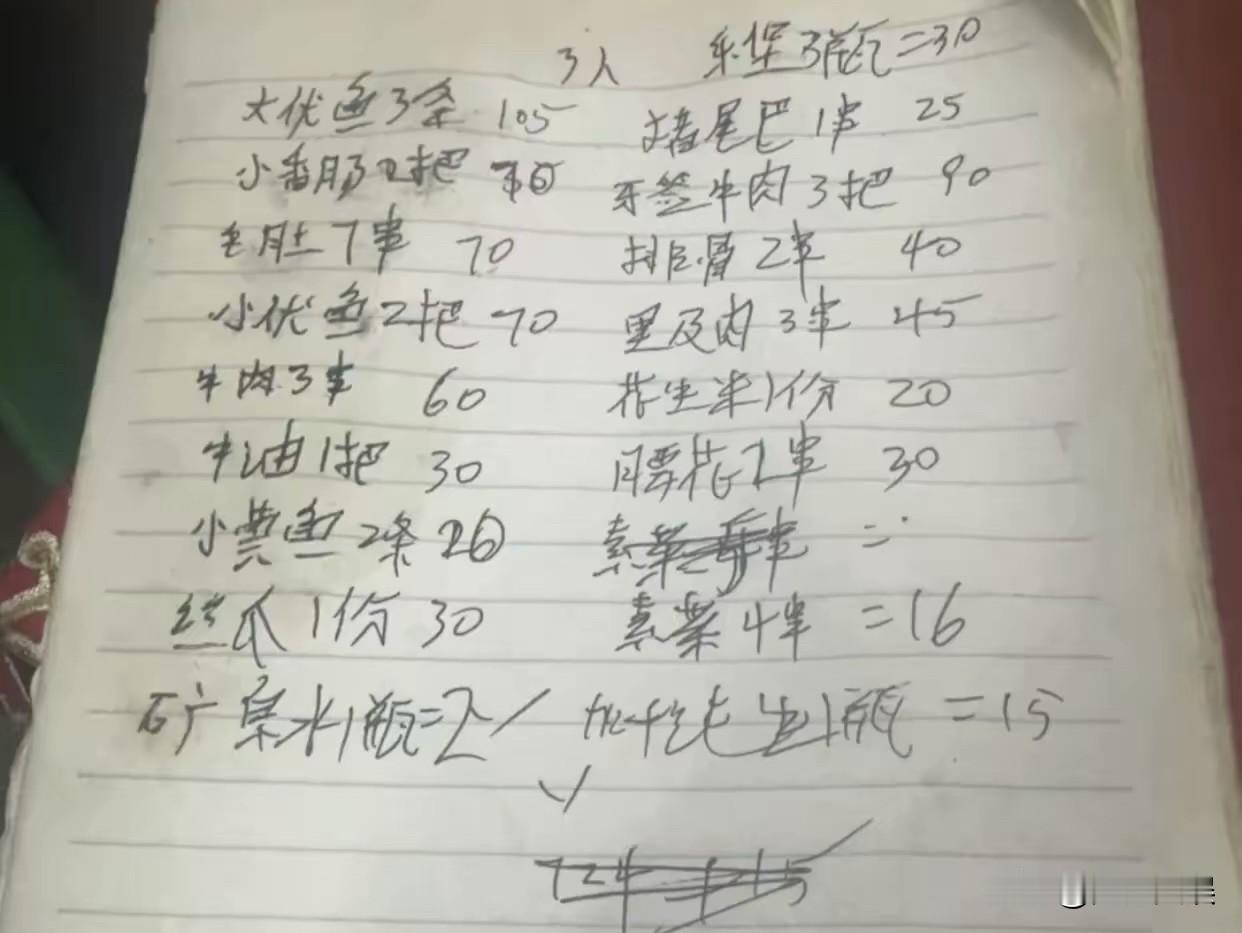 3人 乐堡3瓶=30
大优鱼3条 105 猪尾巴1串 25
小香肠2把 牙签牛肉3把 90
毛肚7串 70 排骨2串 40
小优鱼2把 70 里及肉3串 45
牛肉3串 60 花生米1份 20
牛油1把 30 腰花2串 30
小黄鱼2条 26 素菜 串 =
丝瓜1份 30 素菜4串 =16
矿泉水1瓶=2 加 1瓶 =15